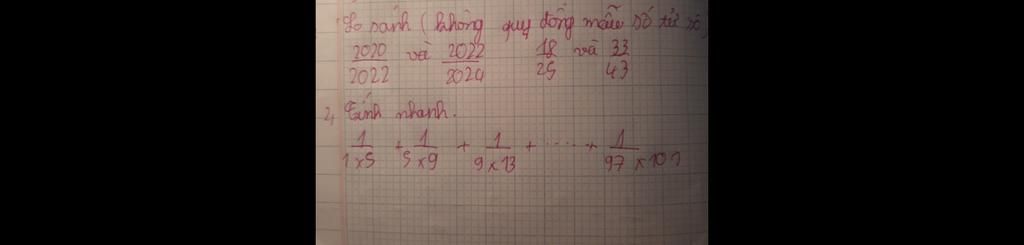 So sánh (không quy đồng mẫu số tử số)
2020/2022 và 2022/2024 18/25 và 33/43
2, Tính nhanh.
1/1x5 + 1/5x9 + 1/9x13 + ..... + 1/97x101